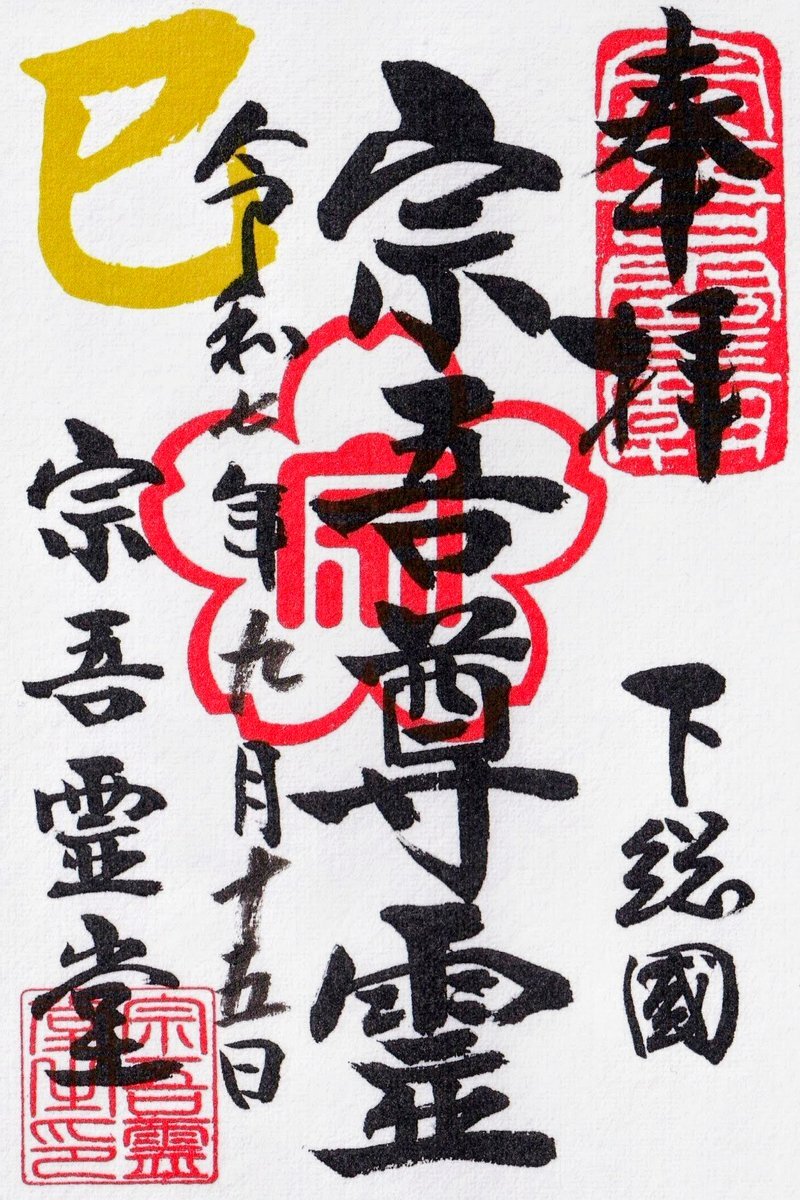 奉拝
下総國
宗吾尊霊
令和七年九月十五日
巳
宗吾霊堂
宗吾霊
堂主印